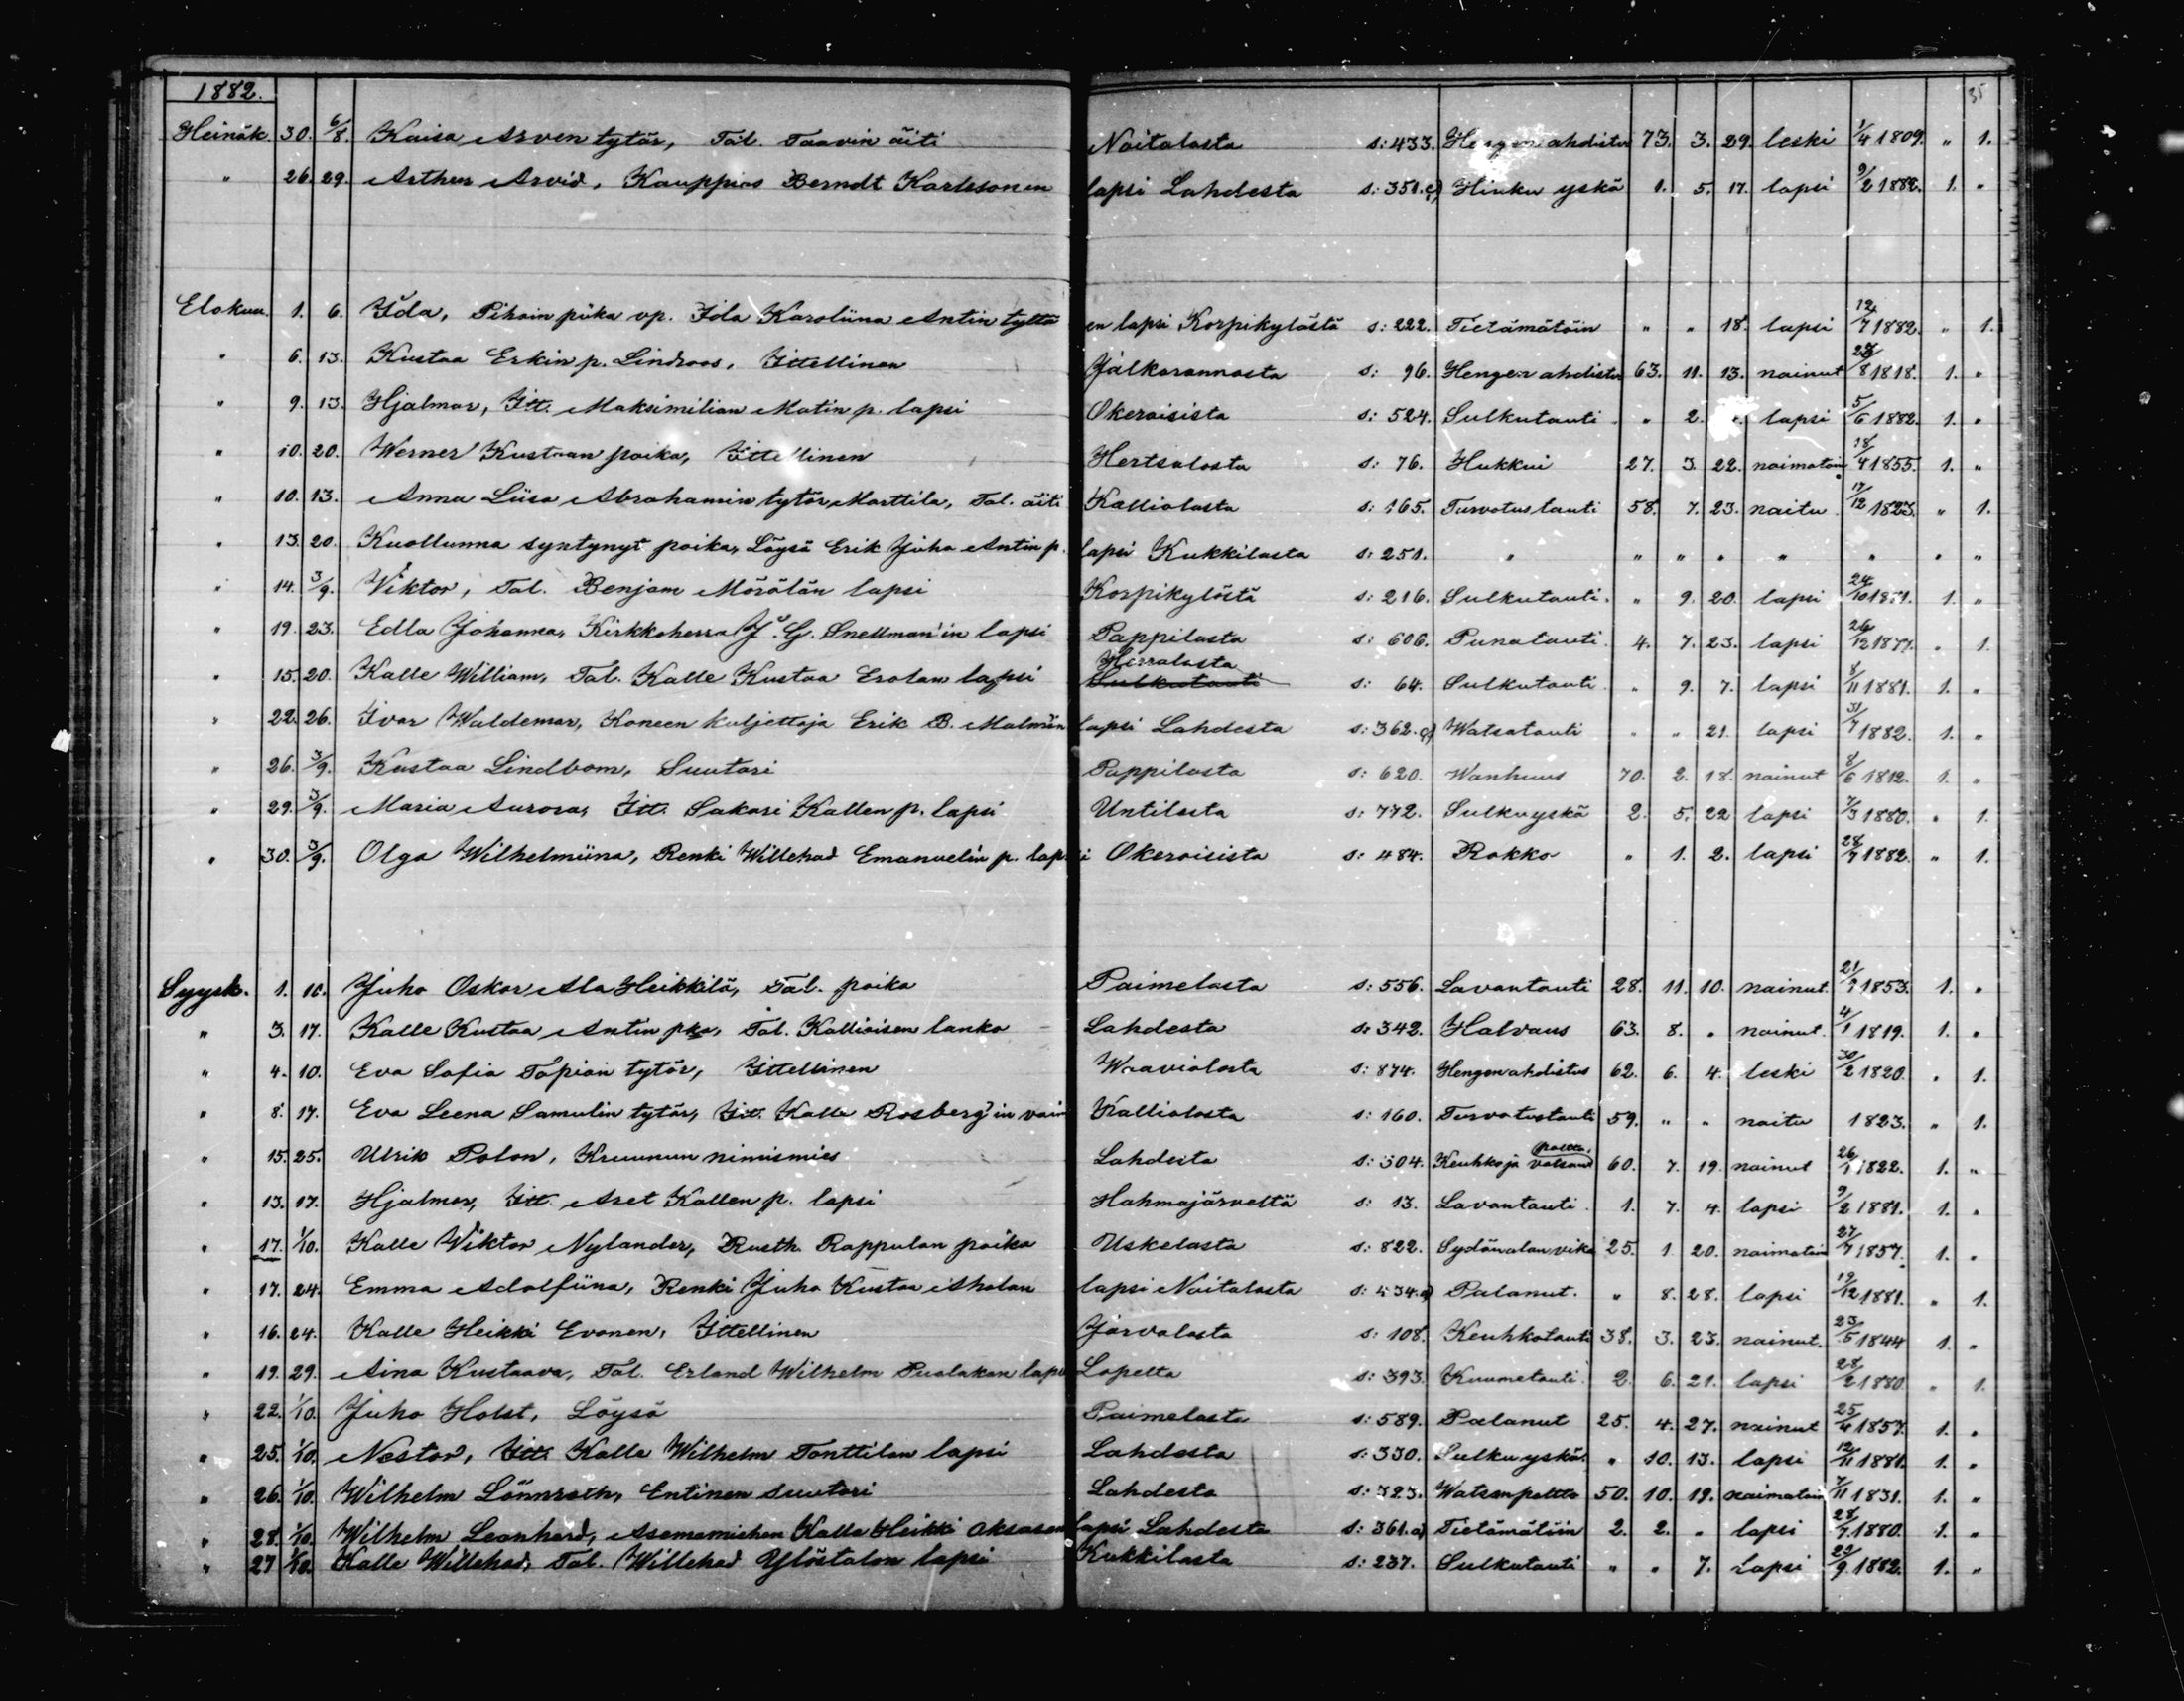 35
1882.
Heinäk. 30. 6/8. Kaisa Arventytär, Tal. Taavin äiti Noitalasta s: 433. Hengen ahdistus 73. 3. 29. leski 1/4 1809. " 1.
" 26. 29. Arthur Arvid, Kauppias Berndt Karlssonin lapsi Lahdesta s: 351.c) Hinku yskä 1. 5. 17. lapsi 9/2 1882. 1. "
Elokuu. 1. 6. Ida, Pihain piika vp. Ida Karoliina Antin tyttären lapsi Korpikylästä s: 222. Tietämätöin " " 18. lapsi 12/7 1882. " 1.
" 6. 13. Kustaa Erkin p. Lindroos, Ittellinen Jalkarannasta s: 96. Hengen ahdistus 63. 11. 13. nainut 23/8 1818. 1. "
" 9. 13. Hjalmar, Itt. Maksimilian Matin p. lapsi Okeroisista s: 524. Sulkutauti " 2. lapsi 5/6 1882. 1. "
" 10. 20. Werner Kustaan poika, Ittellinen Hertsalasta s: 76. Hukkui 27. 3. 22. naimatoin 18/4 1855. 1. "
" 10. 13. Anna Liisa Abrahamin tytär Marttila, Tal. äiti Kalliolasta s: 165. Turvotustauti 58. 7. 23. naitu 17/12 1823. " 1.
" 13. 20. Kuollunna syntynyt poika, Löysä Erik Juho Antin p. lapsi Kukkilasta s: 251. " " " " " " " "
" 14. 3/9. Viktor, Tal. Benjam Mörölän lapsi Korpikylästä s: 216. Sulkutauti. " 9. 20. lapsi 24/10 1881. 1. "
" 19. 23. Edla Johanna, Kirkkoherra J. G. Snellman'in lapsi Pappilasta s: 606. Punatauti. 4. 7. 23. lapsi 26/12 1877. " 1.
" 15. 20. Kalle William, Tal. Kalle Kustaa Erolan lapsi Herralasta Sulkutauti s: 64. Sulkutauti. " 9. 7. lapsi 8/11 1881. 1. "
" 22. 26. Ivar Waldemar, Koneen kuljettaja Erik B. Malmin lapsi Lahdesta s: 362.c) Watsatauti " " 21. lapsi 31/7 1882. 1. "
" 26. 3/9. Kustaa Lindbom, Suutari Pappilasta s: 620. Wanhuus 70. 2. 18. nainut 8/6 1812. 1. "
" 29. 3/9. Maria Aurora, Itt. Sakari Kallen p. lapsi Untilasta s: 772. Sulkuyskä 2. 5. 22 lapsi 7/3 1880. " 1.
" 30. 3/9. Olga Wilhelmiina, Renki Willehad Emanuelin p. lapsi Okeroisista s: 484. Rokko " 1. 2. lapsi 28/7 1882. " 1.
Syysk. 1. 10. Juho Oskar Ala Heikkilä, Tal. poika Paimelasta s: 556. Lavantauti 28. 11. 10. nainut. 21/9 1853. 1. "
" 3. 17. Kalle Kustaa Antin pka, Tal. Kallioisen lanko Lahdesta s: 342. Halvaus 63. 8. " nainut. 4/1 1819. 1. "
" 4. 10. Eva Sofia Tapian tytär, Ittellinen Waaviolasta s: 874. Hengenahdistus 62. 6. 4. leski 30/2 1820. " 1.
" 8. 17. Eva Leena Samulin tytär, Itt. Kalle Rosberg'in vaim Kalliolasta s: 160. Turvotustauti 59. " " naitu 1823. " 1.
" 15. 25. Ulrik Polon, Kruunun nimismies Lahdesta s: 304. Keuhko ja vatsan poltto. 60. 7. 19. nainut 26/1 1822. 1. "
" 13. 17. Hjalmar, Itt. Aret Kallen p. lapsi Hahmajärveltä s: 13. Lavantauti. 1. 7. 4. lapsi 9/2 1881. 1. "
" 17. 1/10. Kalle Wiktor Nylander, Rusth. Rappulan poika Uskelasta s: 822. Sydänalan vika 25. 1. 20. naimatoin 27/7 1857. 1. "
" 17. 24. Emma Adolfiina, Renki Juho Kustaa Aholan lapsi Noitalasta s: 434.a) Palanut. " 8. 28. lapsi 19/12 1881. " 1.
" 16. 24. Kalle Heikki Evonen, Ittellinen Järvalasta s: 108. Keuhkotauti 38. 3. 23. nainut. 23/5 1844 1. "
" 19. 29. Aina Kustaava, Tal. Erland Wilhelm Pualakan lapsi Lopelta s: 393. Kuumetauti. 2. 6. 21. lapsi 28/2 1880. " 1.
" 22. 1/10. Juho Holst, Löysä Paimelasta s: 589. Palanut 25. 4. 27. nainut 25/4 1857. 1. "
" 25. 1/10. Nestor, Itt. Kalle Wilhelm Tonttilan lapsi Lahdesta s: 330. Sulkuyskä. " 10. 13. lapsi 12/11 1881. 1. "
" 26. 1/10. Wilhelm Lönnroth, Entinen suutari Lahdesta s: 323. Watsanpoltto 50. 10. 19. naimatoin 7/11 1831. 1. "
" 28. 1/10. Wilhelm Leonhard, Asemamiehen Kalle Heikki Oksasen lapsi Lahdesta s: 361.a) Tietämätöin 2. 2. " lapsi 28/7 1880. 1. "
" 27 1/10. Kalle Willehad, Tal. Willehad Ylöstalon lapsi Kukkilasta s: 237. Sulkutauti " " 7. Lapsi 22/9 1882. 1. "